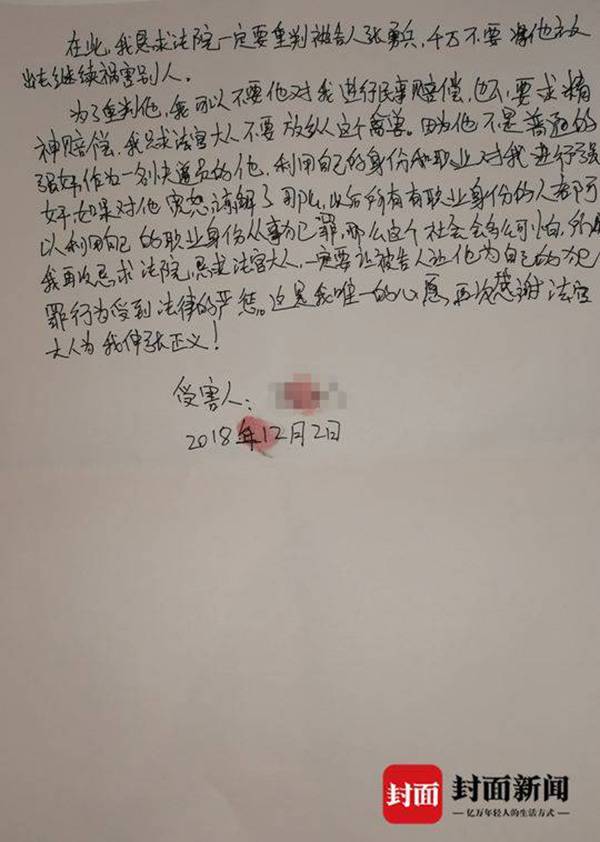 在此，我恳求法院一定要重判被告人张勇兵，千万不要将他放
出去继续祸害别人。
为了重判他，我可以不要他对我进行民事赔偿，也不要求精
神赔偿，我只求法官大人不要放纵这个禽兽。因为他不是普通的
强奸，作为一名快递员的他，利用自己的身份和职业对我进行强
奸，如果对他宽恕谅解了，那么，以后所有有职业身份的人都可
以利用自己的职业身份从事犯罪，那么这个社会会多么可怕，所以
我再次恳求法院，恳求法官大人，一定要让被告人让他为自己的犯
罪行为受到法律的严惩。这是我唯一的心愿，再次感谢法官
大人为我伸张正义！
受害人：
2018年12月2日
封面 封面新闻
亿万年轻人的生活方式